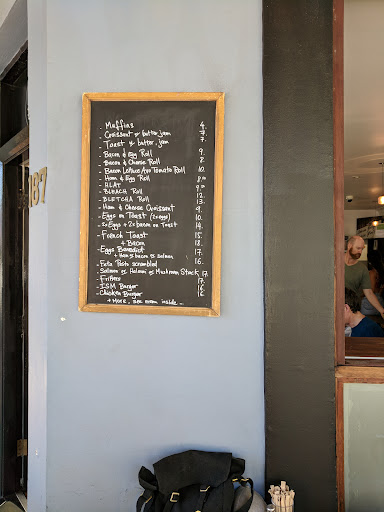 187
- Muffins 4.
- Croissant or butter, jam 7.
- Toast & butter, jam 7.
- Bacon & Egg Roll 9.
- Bacon & Cheese Roll
- Bacon Lettuce Avo Tomato Roll 10.
- Ham & Egg Roll
- HLAT
- BLEACH Roll 12.
- BLETCHA Roll 13.
- Ham & Cheese Croissant 9.
- Eggs on Toast (2x eggs) 10.
- 2x Eggs + 2x bacon on Toast 14.
- French Toast 15.
+ Bacon 18.
- Eggs Benedict 17.
+ Ham or bacon or Salmon
- Feta Pesto scrambled 16.
- Salmon or Haloumi or Mushroom Stack 17.
- Fritters 17.
- ISM Burger 16.
- Chicken Burger 16.
+ MORE, see menu inside...